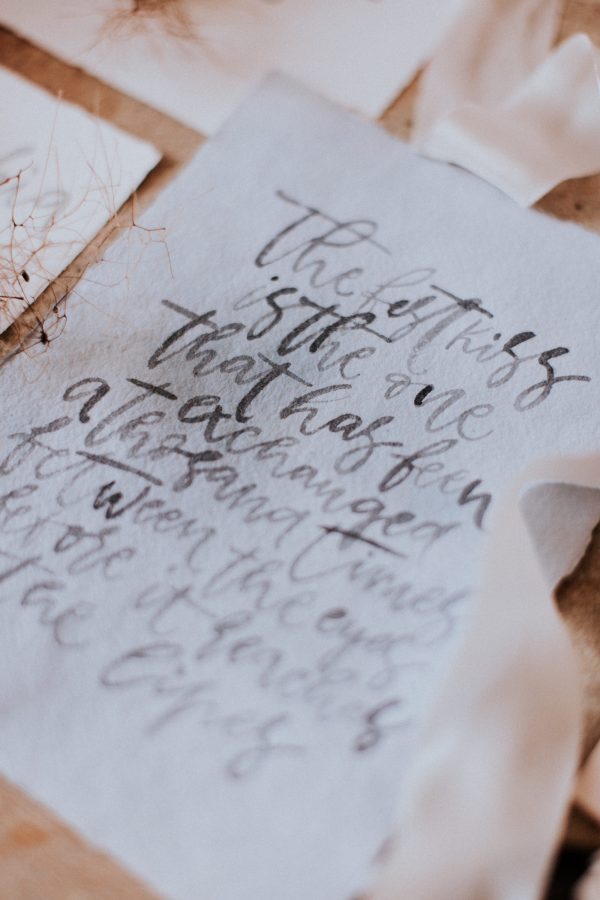 the best kiss
is the one
that has been
exchanged
a thosand times
between the eyes
before it reaches
the lipes